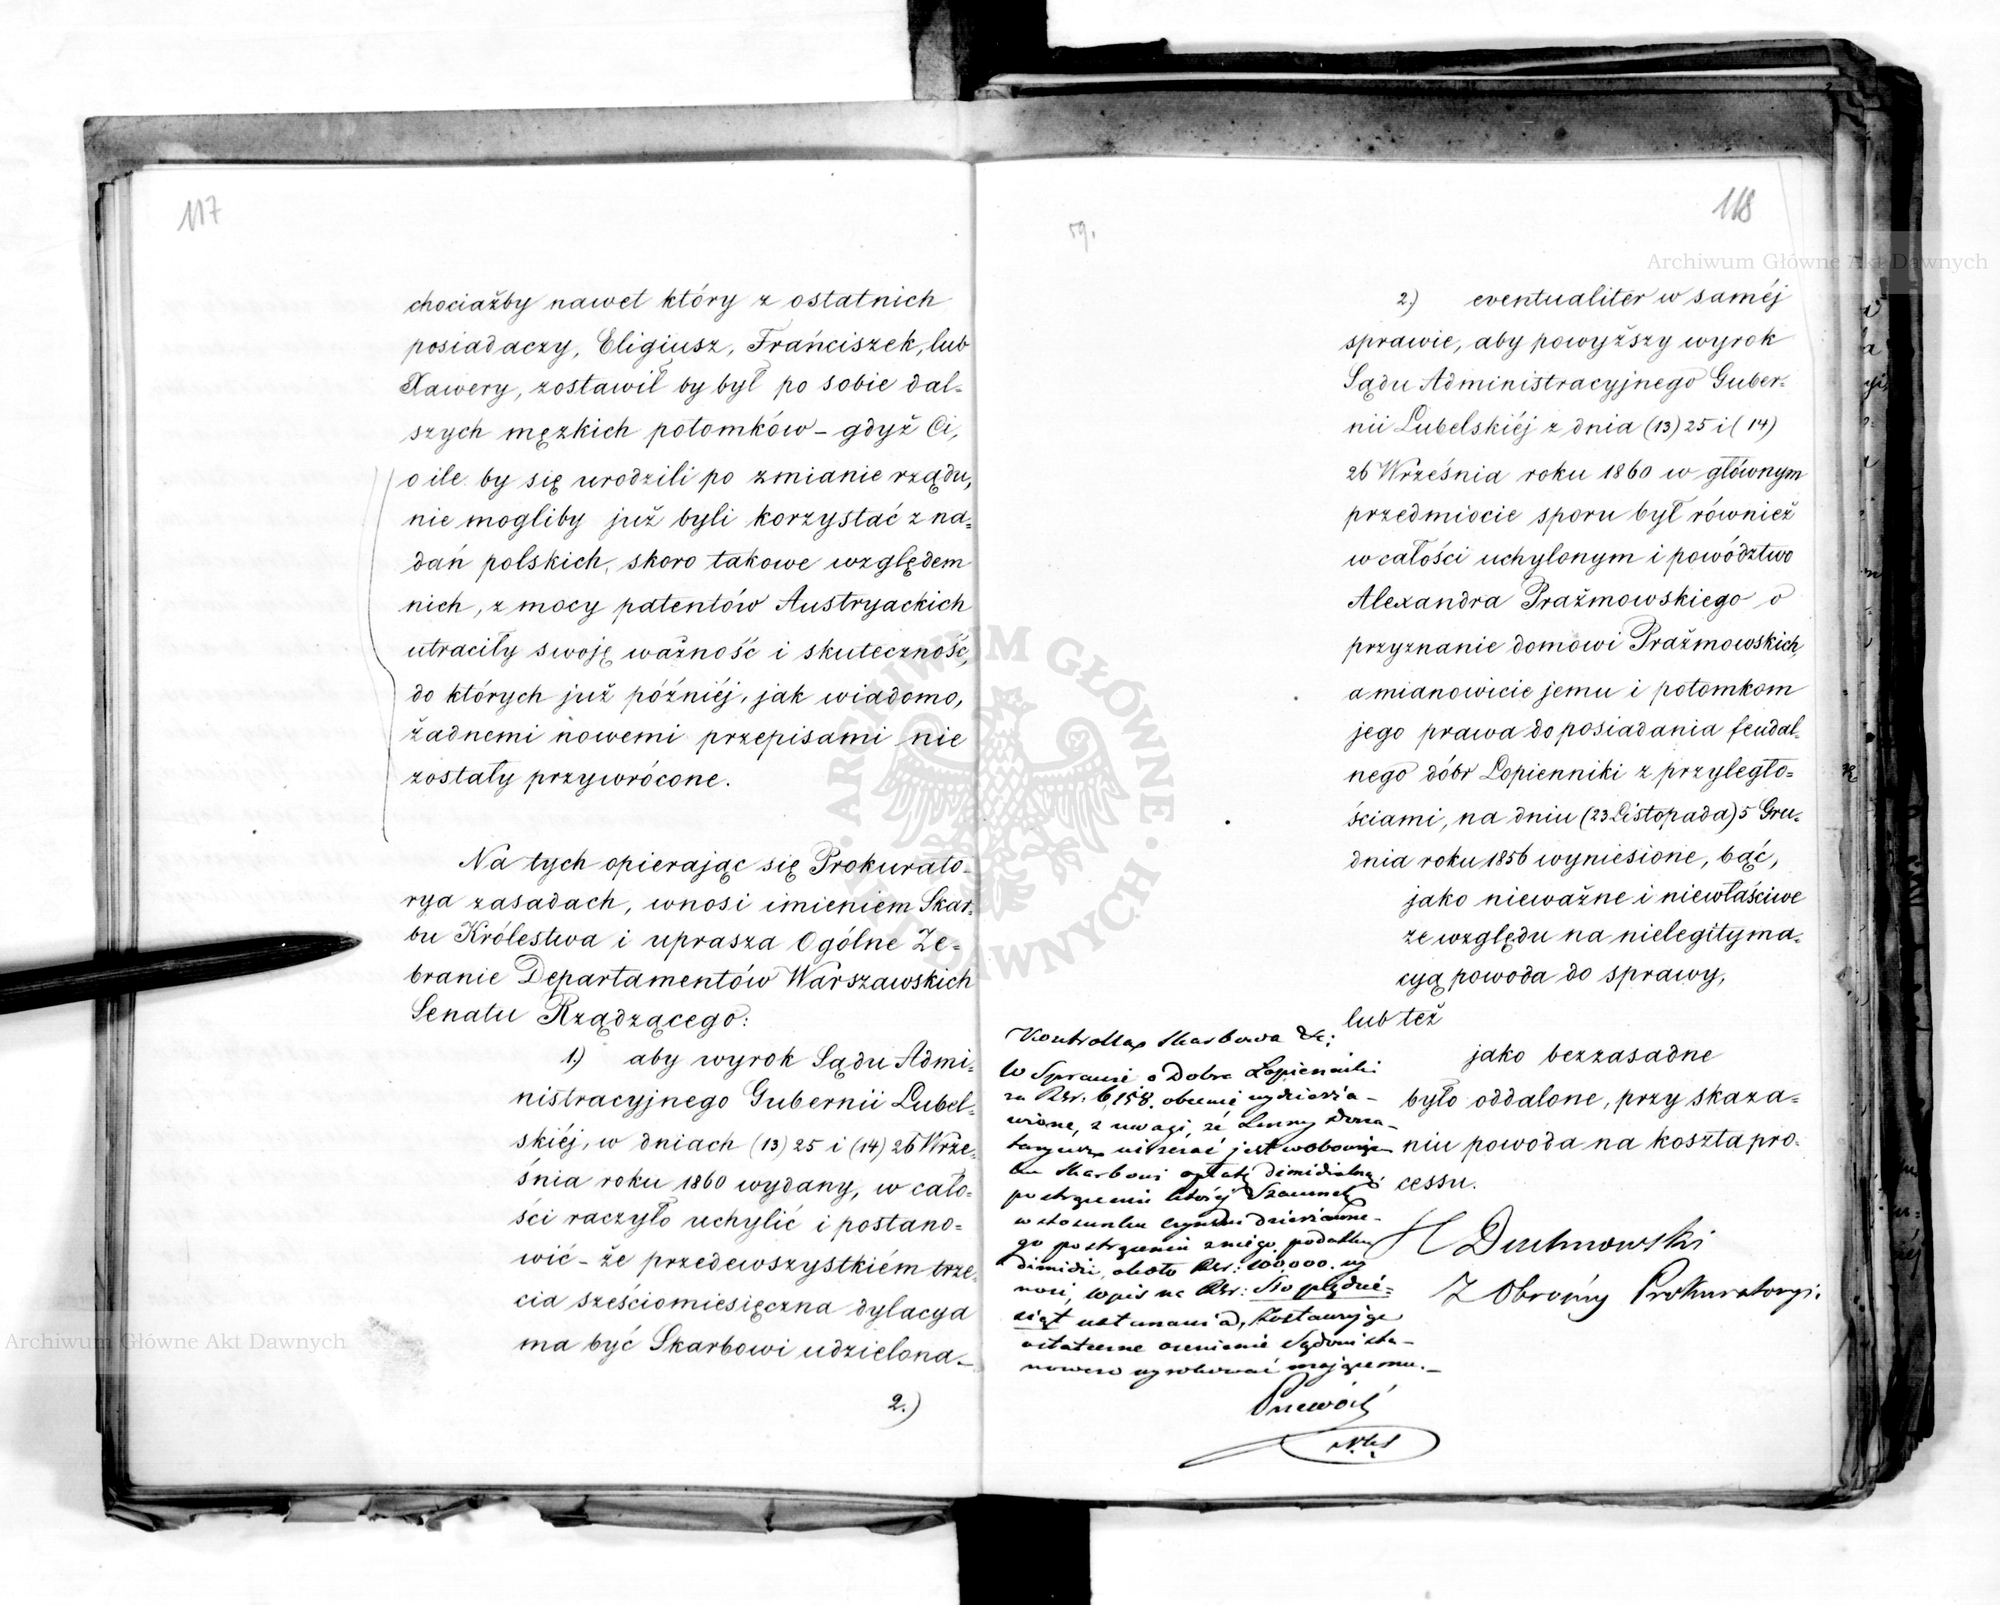 117
chociażby nawet który z ostatnich
posiadaczy, Eligiusz, Frańciszek, lub
Xawery, zostawił by był po sobie dal-
szych męzkich potomków – gdyż Ci,
o ile by się urodzili po zmianie rządu,
nie mogliby już byli korzystać z na-
dań polskich, skoro takowe względem
nich, z mocy patentów Austryackich
utraciły swoję ważność i skuteczność,
do których już późniéj, jak wiadomo,
żadnemi nowemi przepisami nie
zostały przywrócone.
Na tych opierając się Prokurato-
rya zasadach, wnosi imieniem Skar-
bu Królestwa i uprasza Ogólne Ze-
branie Departamentów Warszawskich
Senatu Rządzącego:
1.) aby wyrok Sądu Admi-
nistracyjnego Gubernii Lubel-
skiéj, w dniach (13) 25 i (14) 26 Wrze-
śnia roku 1860 wydany, w cało-
ści raczyło uchylić i postano-
wić – że przedewszystkiém trze-
cia sześciomiesięczna dylacya
ma być Skarbowi udzielona –
2.)
59.
118
2.) eventualiter w saméj
sprawie, aby powyższy wyrok
Sądu Administracyjnego Guber-
nii Lubelskiéj z dnia (13) 25 i (14)
26 Września roku 1860 w głównym
przedmiocie sporu był również
w całości uchylonym i powództwo
Alexandra Prażmowskiego o
przyznanie domowi Prażmowskich,
a mianowicie jemu i potomkom
jego prawa do posiadania feudal-
nego dóbr Łopienniki z przyległo-
ściami, na dniu (23 Listopada) 5 Gru-
dnia roku 1856 wyniesione, bąć,
jako nieważne i niewłaściwe
ze względu na nielegityma-
cyą powoda do sprawy,
lub też
jako bezzasadne
było oddalone, przy skaza-
niu powoda na koszta pro-
cessu.
H Duchnowski
Z Obrońcy Prokuratoryi.
Kontrolla Skarbowa &c:
W Sprawie o Dobra Łopienniki
za Rsr. 6,158. obecnie wydzierża-
wione, z uwagi że Lenny Dona-
taryusz uiszczać jest w obowiąz-
ku Skarbowi opłatę dimidialną,
po strąceniu której Szacunek
w stosunku czynszu dzierżawne-
go po strąceniu z niego podatku
dimidii, około Rsr: 100,000. wy
nosi, wpis na Rsr: Sto pięćdzie-
siąt ustanawia, zostawując
ostateczne ocenienie Sądowi sta-
nowczo wyrokować mającemu. –
ARCHIWUM GŁÓWNE AKT DAWNYCH
Archiwum Główne Akt Dawnych
Archiwum Główne Akt Dawnych